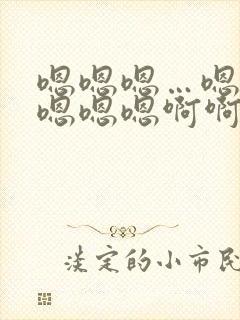 嗯嗯嗯…嗯
嗯嗯嗯啊啊
淡定的小市民